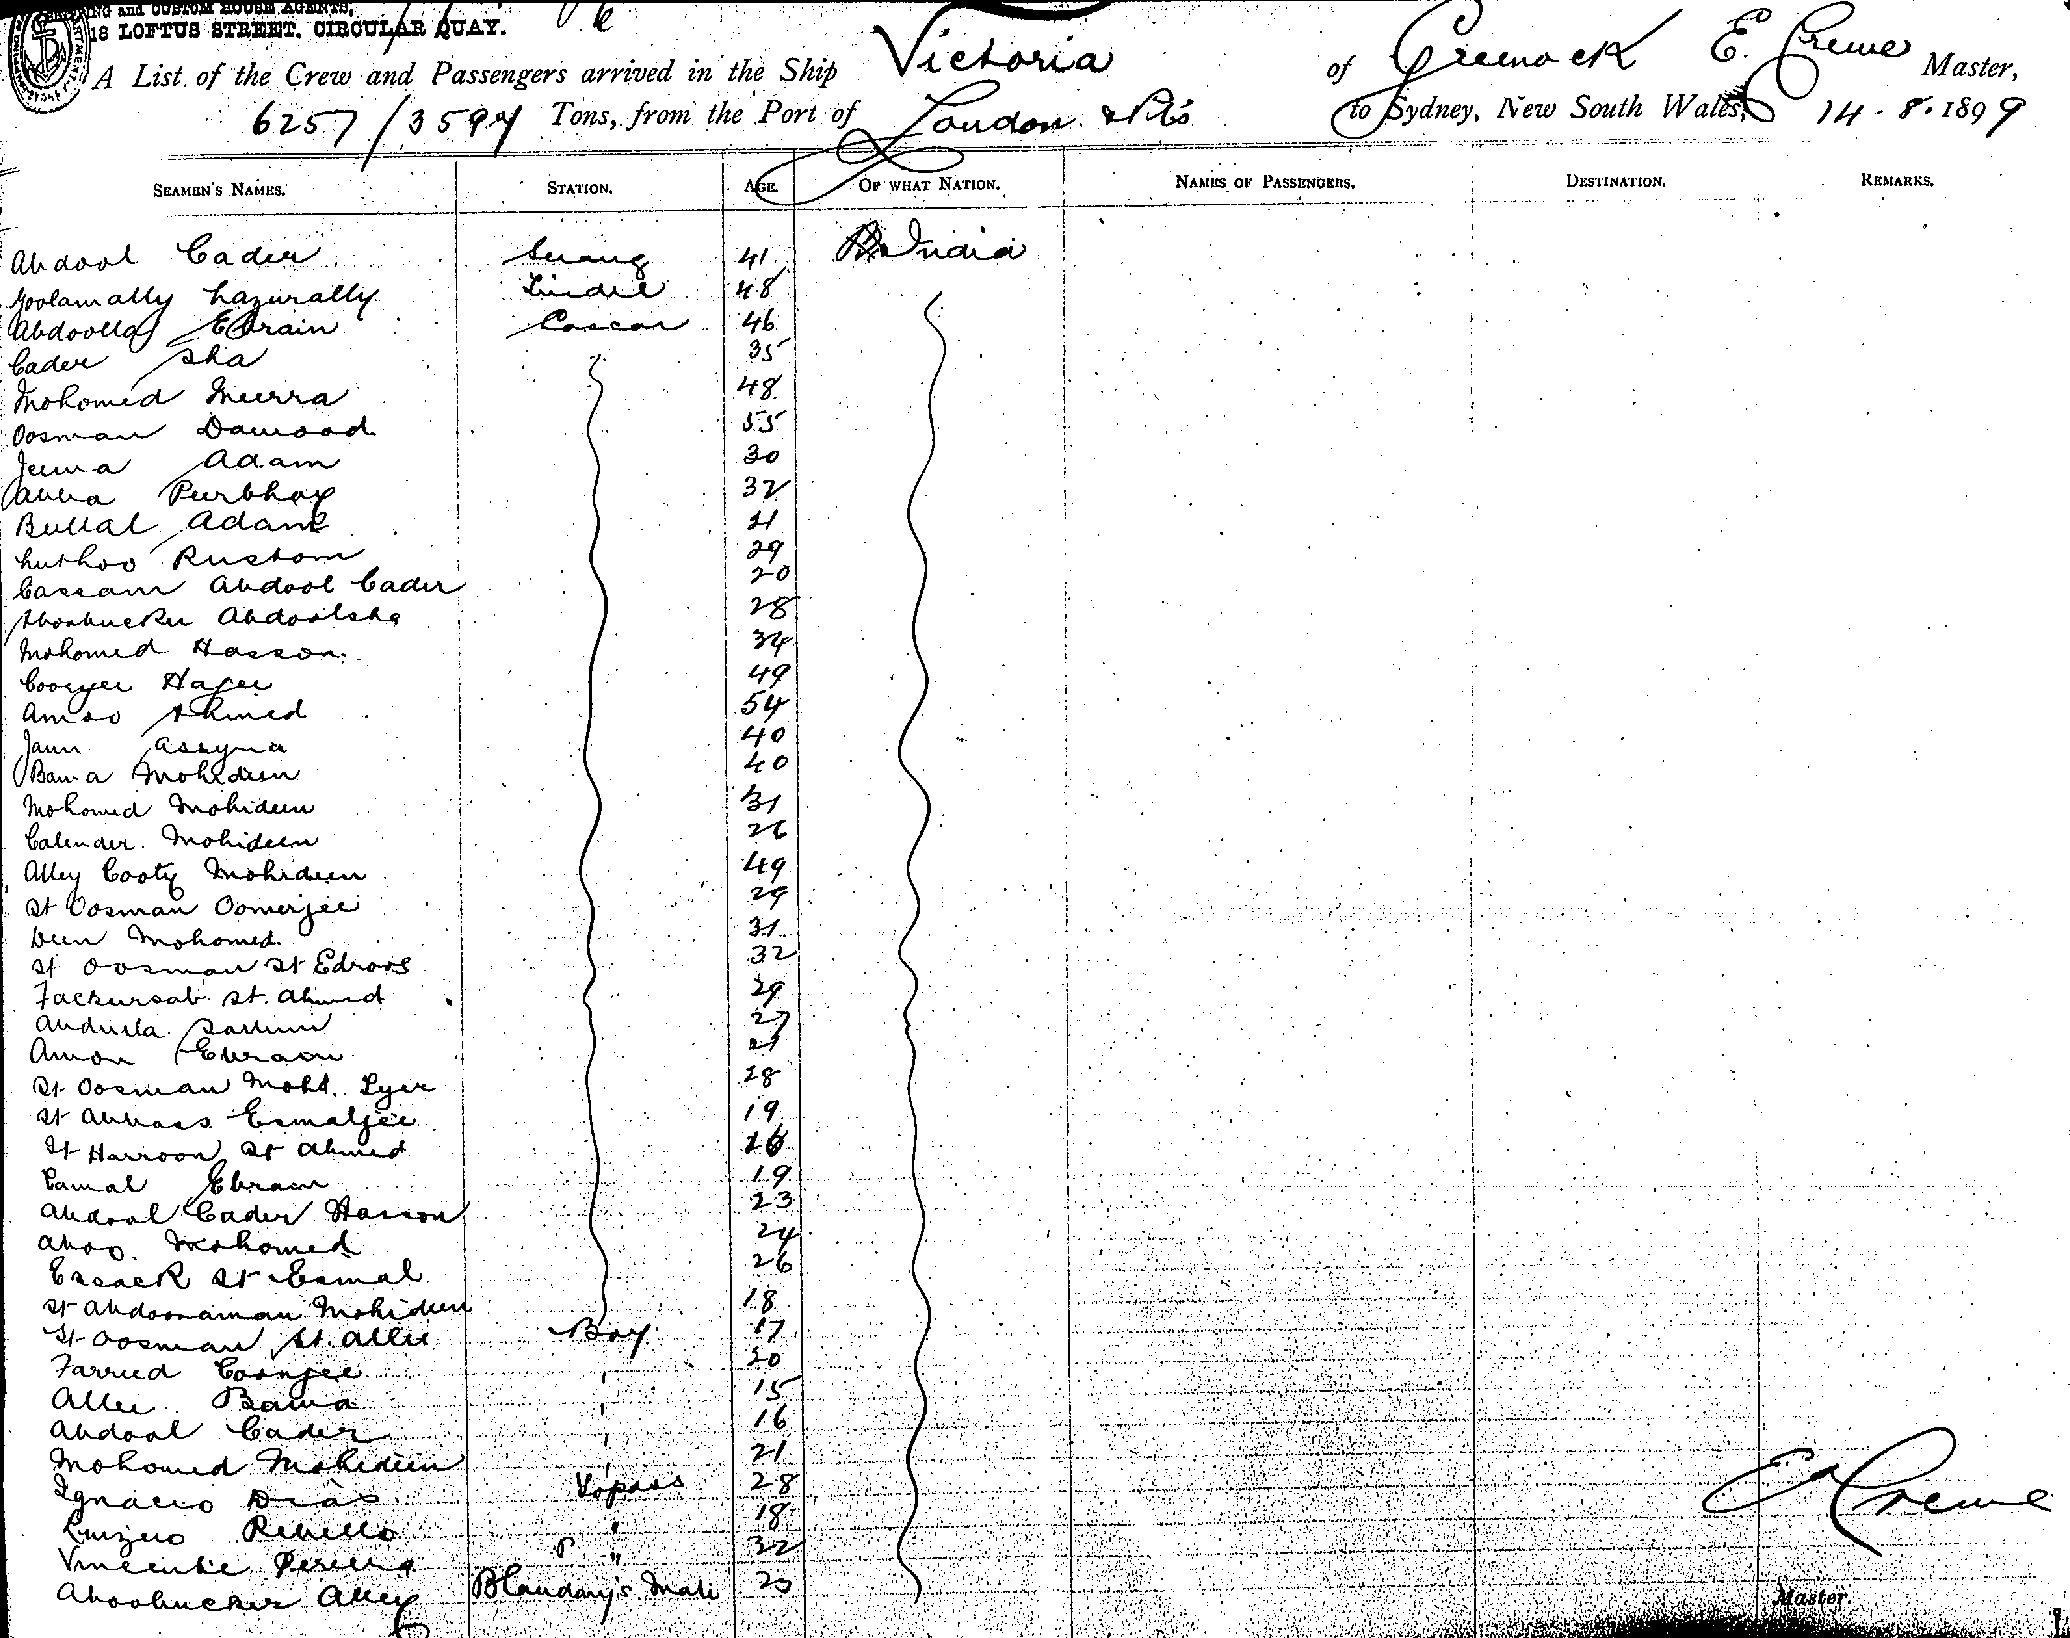 AND CUSTOM HOUSE AGENTS,
18 LOFTUS STREET, CIRCULAR QUAY.
A List of the Crew and Passengers arrived in the Ship Victoria of Greenock E. Creme Master,
6257/3594 Tons, from the Port of London & Pts to Sydney, New South Wales, 14.8.1899
SEAMEN'S NAMES. STATION. AGE. OF WHAT NATION. NAMES OF PASSENGERS. DESTINATION. REMARKS.
Abdool Cader Serang 41 B India
Goolamally Lazurally Tindel 48
Abdoolla Ebrain Cascar 46
Cader Sha 35
Mohomed Meerra 48
Oosman Dawood 55
Jeewa Adam 30
Abba Purbhoy 32
Bullal Adam 21
Luthoo Rustom 29
Cassam Abdool Cader 20
Aboobucker Abdoolsha 28
Mohomed Hasson 34
Cooryee Hajee 49
Amoo Ahmed 54
Jaun Assyna 40
Bawa Mohideen 40
Mohomed Mohideen 31
Calender Mohideen 26
Alley Cooty Mohideen 49
St Oosman Oomerjee 29
Deen Mohomed 31
St Oosman St Edroos 32
Fackursab St. Ahmed 29
Abdulla 27
Amon Ebraim 21
St Oosman Moht. Lyer 28
St Abbass Esmaljee 19
St Harroon St Ahmed 18
Camal Ebram 19
Abdool Cader Hasson 23
Aboo Mohomed 24
Essack St Esmal 26
St Abdoonaman Mohideen 18
St Oosman St. Allee Boy 17
Farreed Coonjee " 20
Allee Bawa " 15
Abdool Cader " 16
Mohomed Mohideen " 21
Ignacio Dias Topass 28
Rebello " 18
Vincentie Pereira " 32
Aboobucker Alley Bhandary's Mate 25
E Creme
Master.